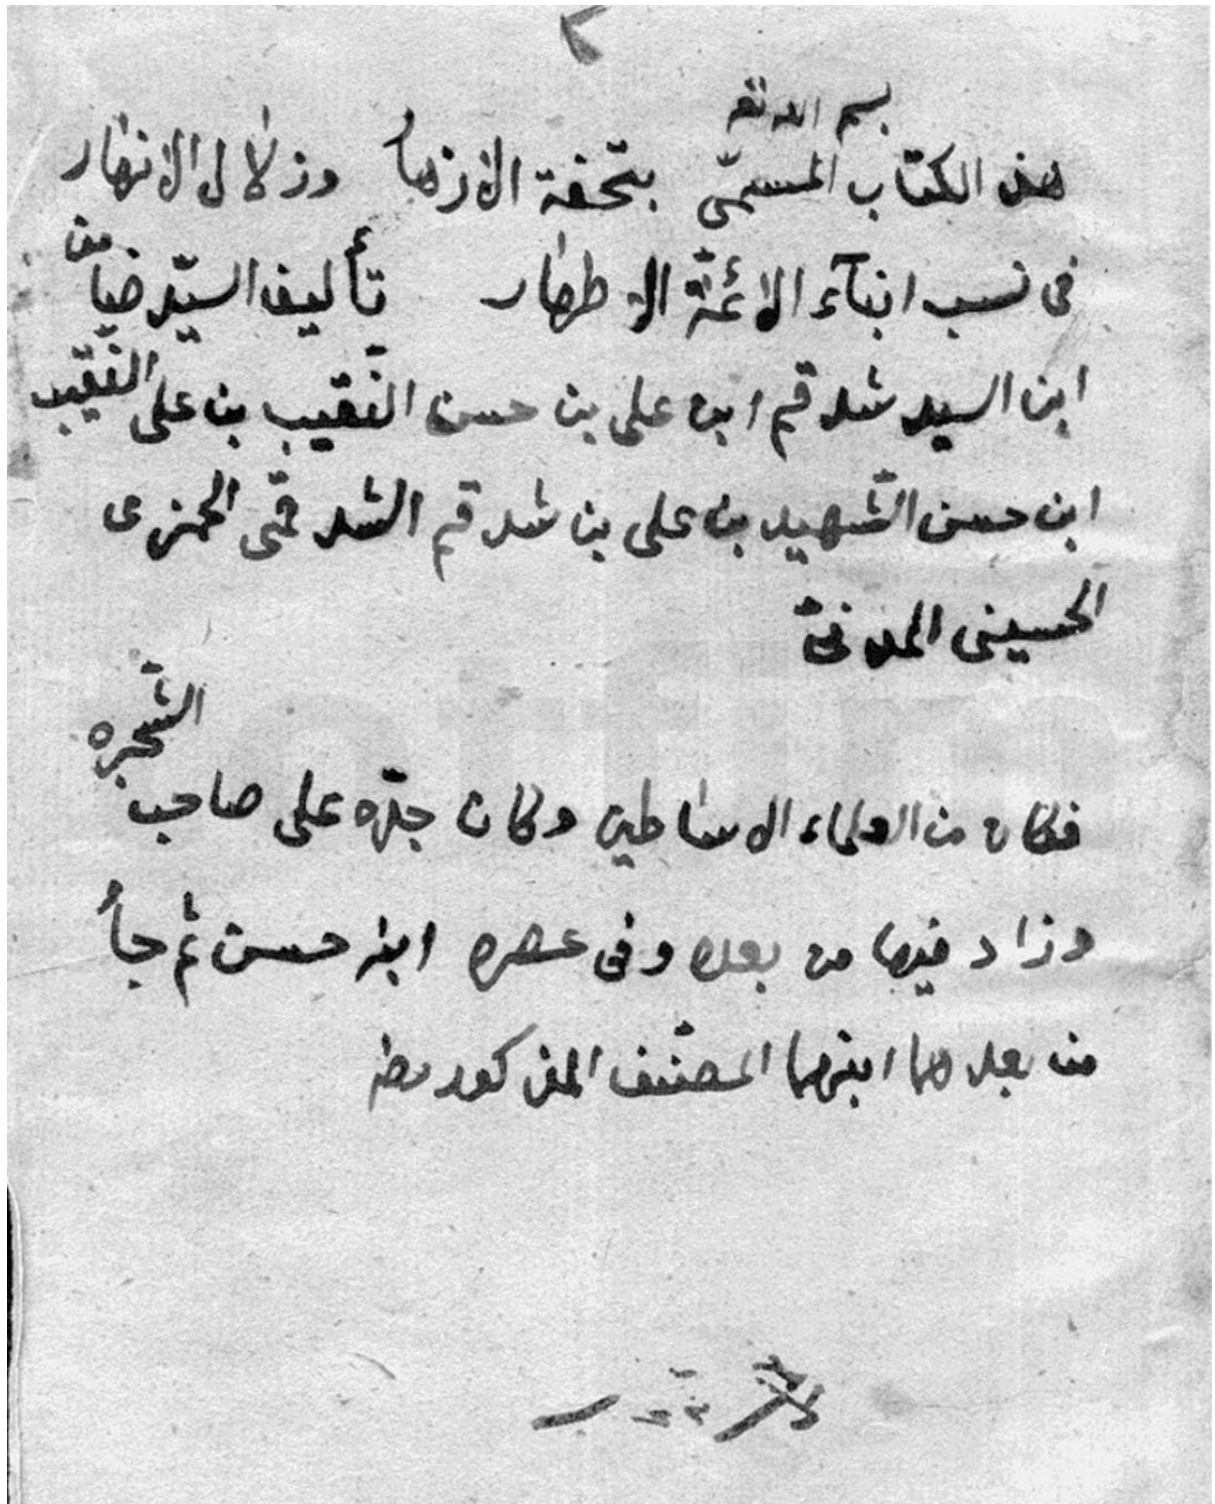 بسم الله تعـ
هذا الكتاب المسمّى بتحفة الازهار وزلال الانهار
فى نسب ابنآء الائمّة الاطهار تأليف السيّد ضامن
ابن السيد شدقم ابن على بن حسن النّقيب بن على النّقيب
ابن حسن الشّهيد بن على بن شدقم الشدقمّى الحمزى
الحسينى المدنى
فكان من العلماء الاساطين وكان جدّه على صاحب الشّجره
وزاد فيها من بعده وفى عصره ابنه حسن ثم جأ
من بعدهما ابنهما المصنّف المذكور